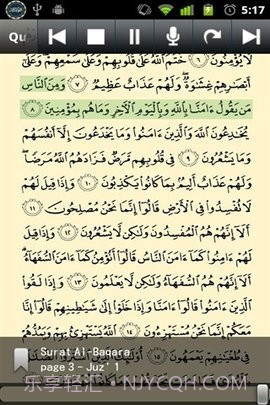 5:17
Qu
لَا يُؤْمِنُونَ ٦ خَتَمَ اللَّهُ عَلَىٰ قُلُوبِهِمْ وَعَلَىٰ سَمْعِهِمْ وَعَلَىٰ
أَبْصَٰرِهِمْ غِشَٰوَةٌ وَلَهُمْ عَذَابٌ عَظِيمٌ ٧ وَمِنَ النَّاسِ
مَن يَقُولُ ءَامَنَّا بِاللَّهِ وَبِالْيَوْمِ الْءَاخِرِ وَمَا هُم بِمُؤْمِنِينَ ٨
يُخَٰدِعُونَ اللَّهَ وَالَّذِينَ ءَامَنُوا وَمَا يَخْدَعُونَ إِلَّا أَنفُسَهُمْ
وَمَا يَشْعُرُونَ ٩ فِي قُلُوبِهِم مَّرَضٌ فَزَادَهُمُ اللَّهُ مَرَضًا
وَلَهُمْ عَذَابٌ أَلِيمٌ بِمَا كَانُوا يَكْذِبُونَ ١٠ وَإِذَا قِيلَ لَهُمْ
لَا تُفْسِدُوا فِي الْأَرْضِ قَالُوا إِنَّمَا نَحْنُ مُصْلِحُونَ ١١
أَلَا إِنَّهُمْ هُمُ الْمُفْسِدُونَ وَلَٰكِن لَّا يَشْعُرُونَ ١٢ وَإِذَا قِيلَ
لَهُمْ ءَامِنُوا كَمَا ءَامَنَ النَّاسُ قَالُوا أَنُؤْمِنُ كَمَا ءَامَنَ السُّفَهَاءُ
أَلَا إِنَّهُمْ هُمُ السُّفَهَاءُ وَلَٰكِن لَّا يَعْلَمُونَ ١٣ وَإِذَا لَقُوا
الَّذِينَ ءَامَنُوا قَالُوا ءَامَنَّا وَإِذَا خَلَوْا إِلَىٰ شَيَٰطِينِهِمْ قَالُوا إِنَّا
مَعَكُمْ إِنَّمَا نَحْنُ مُسْتَهْزِءُونَ ١٤ اللَّهُ يَسْتَهْزِئُ بِهِمْ وَيَمُدُّهُمْ
فِي طُغْيَٰنِهِمْ يَعْمَهُونَ ١٥
Surat Al-Baqara
page 3 - Juz' 1
乐享轻汇 - NJYCQH.COM